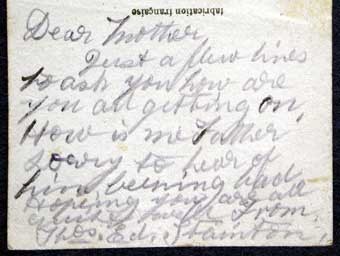 fabrication française
Dear Mother,
Just a few lines
to ask you how are
you all getting on,
How is me Father
Sorry to hear of
him beening bad
Hopeing you are all
quiet well From
Thos. Ed. Stainton,